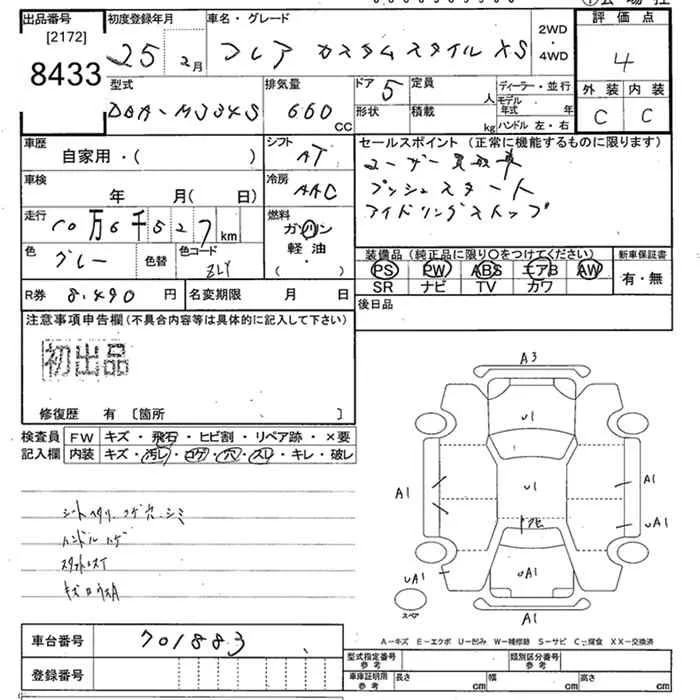 出品番号
[2172]
8433
初度登録年月
25 2月
車名・グレード
フレア カスタムスタイル XS
2WD
・
4WD
評価点
4
外装 内装
C C
型式
DBA-MJ34S
排気量
660 CC
ドア 5
形状
定員 人
積載 kg
ディーラー・並行
モデル年式 年
ハンドル 左・右
車歴
自家用・( )
シフト
AT
車検
年 月( 日)
冷房
AAC
走行
10万6千527km
燃料
ガソリン
軽油
・
( )
色
グレー
色替
色コード
ZLY
R券 8,490 円
名変期限 月 日
セールスポイント (正常に機能するものに限ります)
ユーザー買取車
プッシュスタート
アイドリングストップ
装備品 (純正品に限り○をつけてください)
PS PW ABS エアB AW
SR ナビ TV カワ
新車保証書
有・無
後日品
注意事項申告欄 (不具合内容等は具体的に記入して下さい)
初出品
修復歴 有 〔箇所 〕
検査員
記入欄
FW キズ・飛石・ヒビ割・リペア跡・×要
内装 キズ・汚レ・コゲ・穴・スレ・キレ・破レ
シートヘタリ コゲ穴 シミ
ハンドル ハゲ
A3
U1
A1
U1
A1
UA1
UA1
UA1
スペア
A1
A−キズ E−エクボ U−凹み W−補修跡 S−サビ C−腐食 XX−交換済
車台番号 701883
登録番号
型式指定番号
参考
類別区分番号
参考
車庫証明用
参考
長さ cm
幅 cm
高さ cm